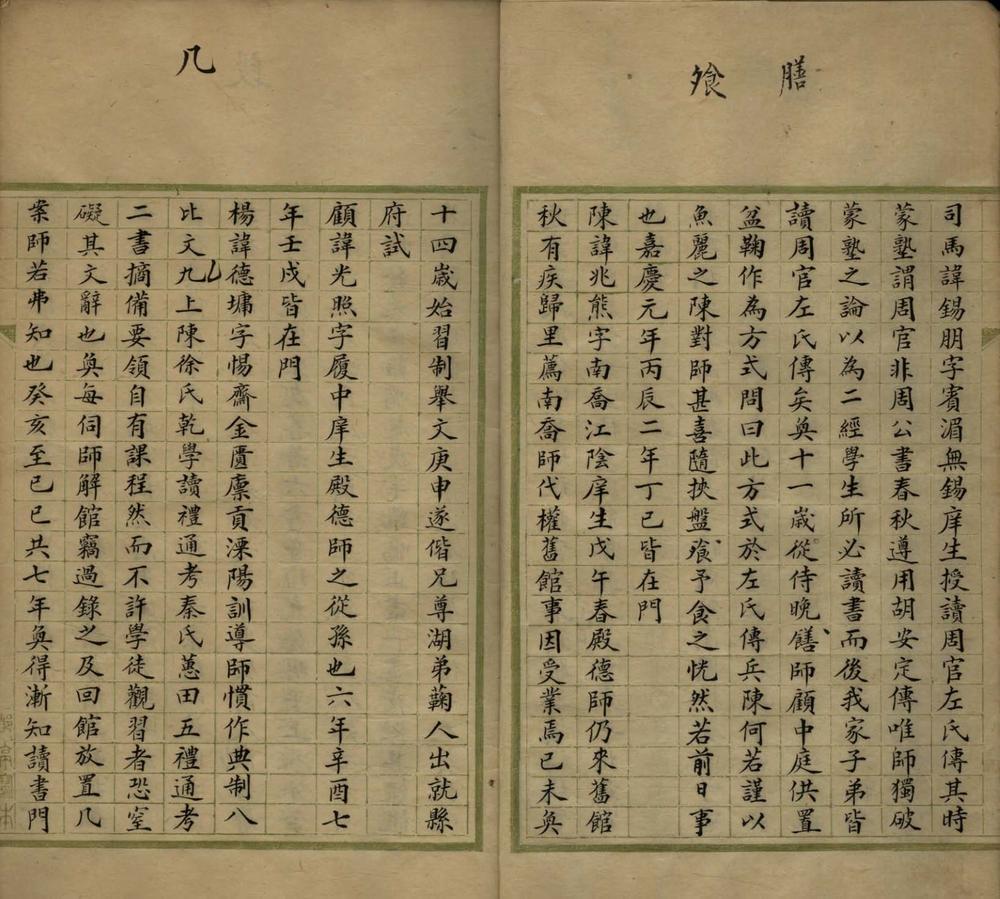 膳
飧
司馬諱錫朋字賓湄無錫庠生授讀周官左氏傳其時
蒙塾謂周官非周公書春秋遵用胡安定傳唯師獨破
蒙塾之論以為二經學生所必讀書而後我家子弟皆
讀周官左氏傳矣奐十一歲從侍晚饍師顧中庭供置
盆鞠作為方式問曰此方式於左氏傳兵陳何若謹以
魚麗之陳對師甚喜隨挾盤飧予食之恍然若前日事
也嘉慶元年丙辰二年丁巳皆在門
陳諱兆熊字南喬江陰庠生戊午春殿德師仍來舊館
秋有疾歸里薦南喬師代權舊館事因受業焉己未奐
几
十四歲始習制舉文庚申遂偕兄尊湖弟蘜人出就縣
府試
顧諱光照字履中庠生殿德師之從孫也六年辛酉七
年壬戌皆在門
楊諱德墉字惕齋金匱廩貢溧陽訓導師慣作典制八
比文九上陳徐氏乾學讀禮通考秦氏蕙田五禮通考
二書摘備要領自有課程然而不許學徒觀習者恐窒
礙其文辭也奐每伺師解館竊過錄之及回館放置几
案師若弗知也癸亥至己巳共七年奐得漸知讀書門